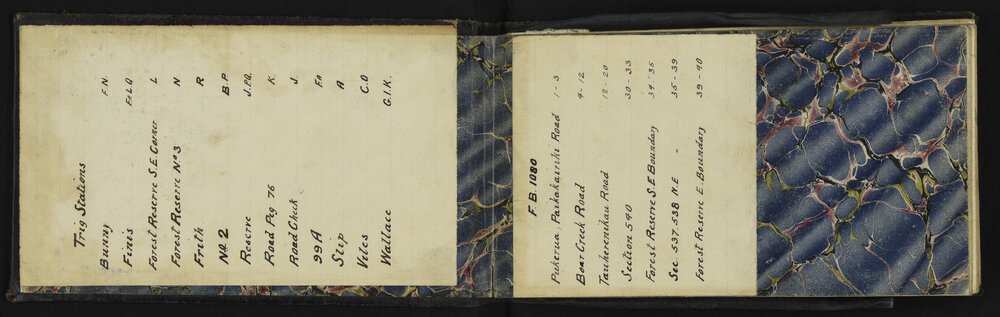 Trig Stations
Bunny F.N.
Finis F.&L.Q
Forest Reserve S.E. Corner L
Forest Reserve No 3 N
Frith R
No 2 B.P.
Reserve J.P.Q.
Road Peg 76 K
Road Check J
99A F.O
Slip A
Viles C.D
Wallace G.I.K.
F.B. 1080
Pukerua, Paikakariki Road 1-3
Boar Creek Road 4-12
Tauherenikau Road 12-20
Section 540 30-33
Forest Reserve S.E Boundary 34-36
Sec 537.538 N.E " 35-39
Forest Reserve E. Boundary 39-40